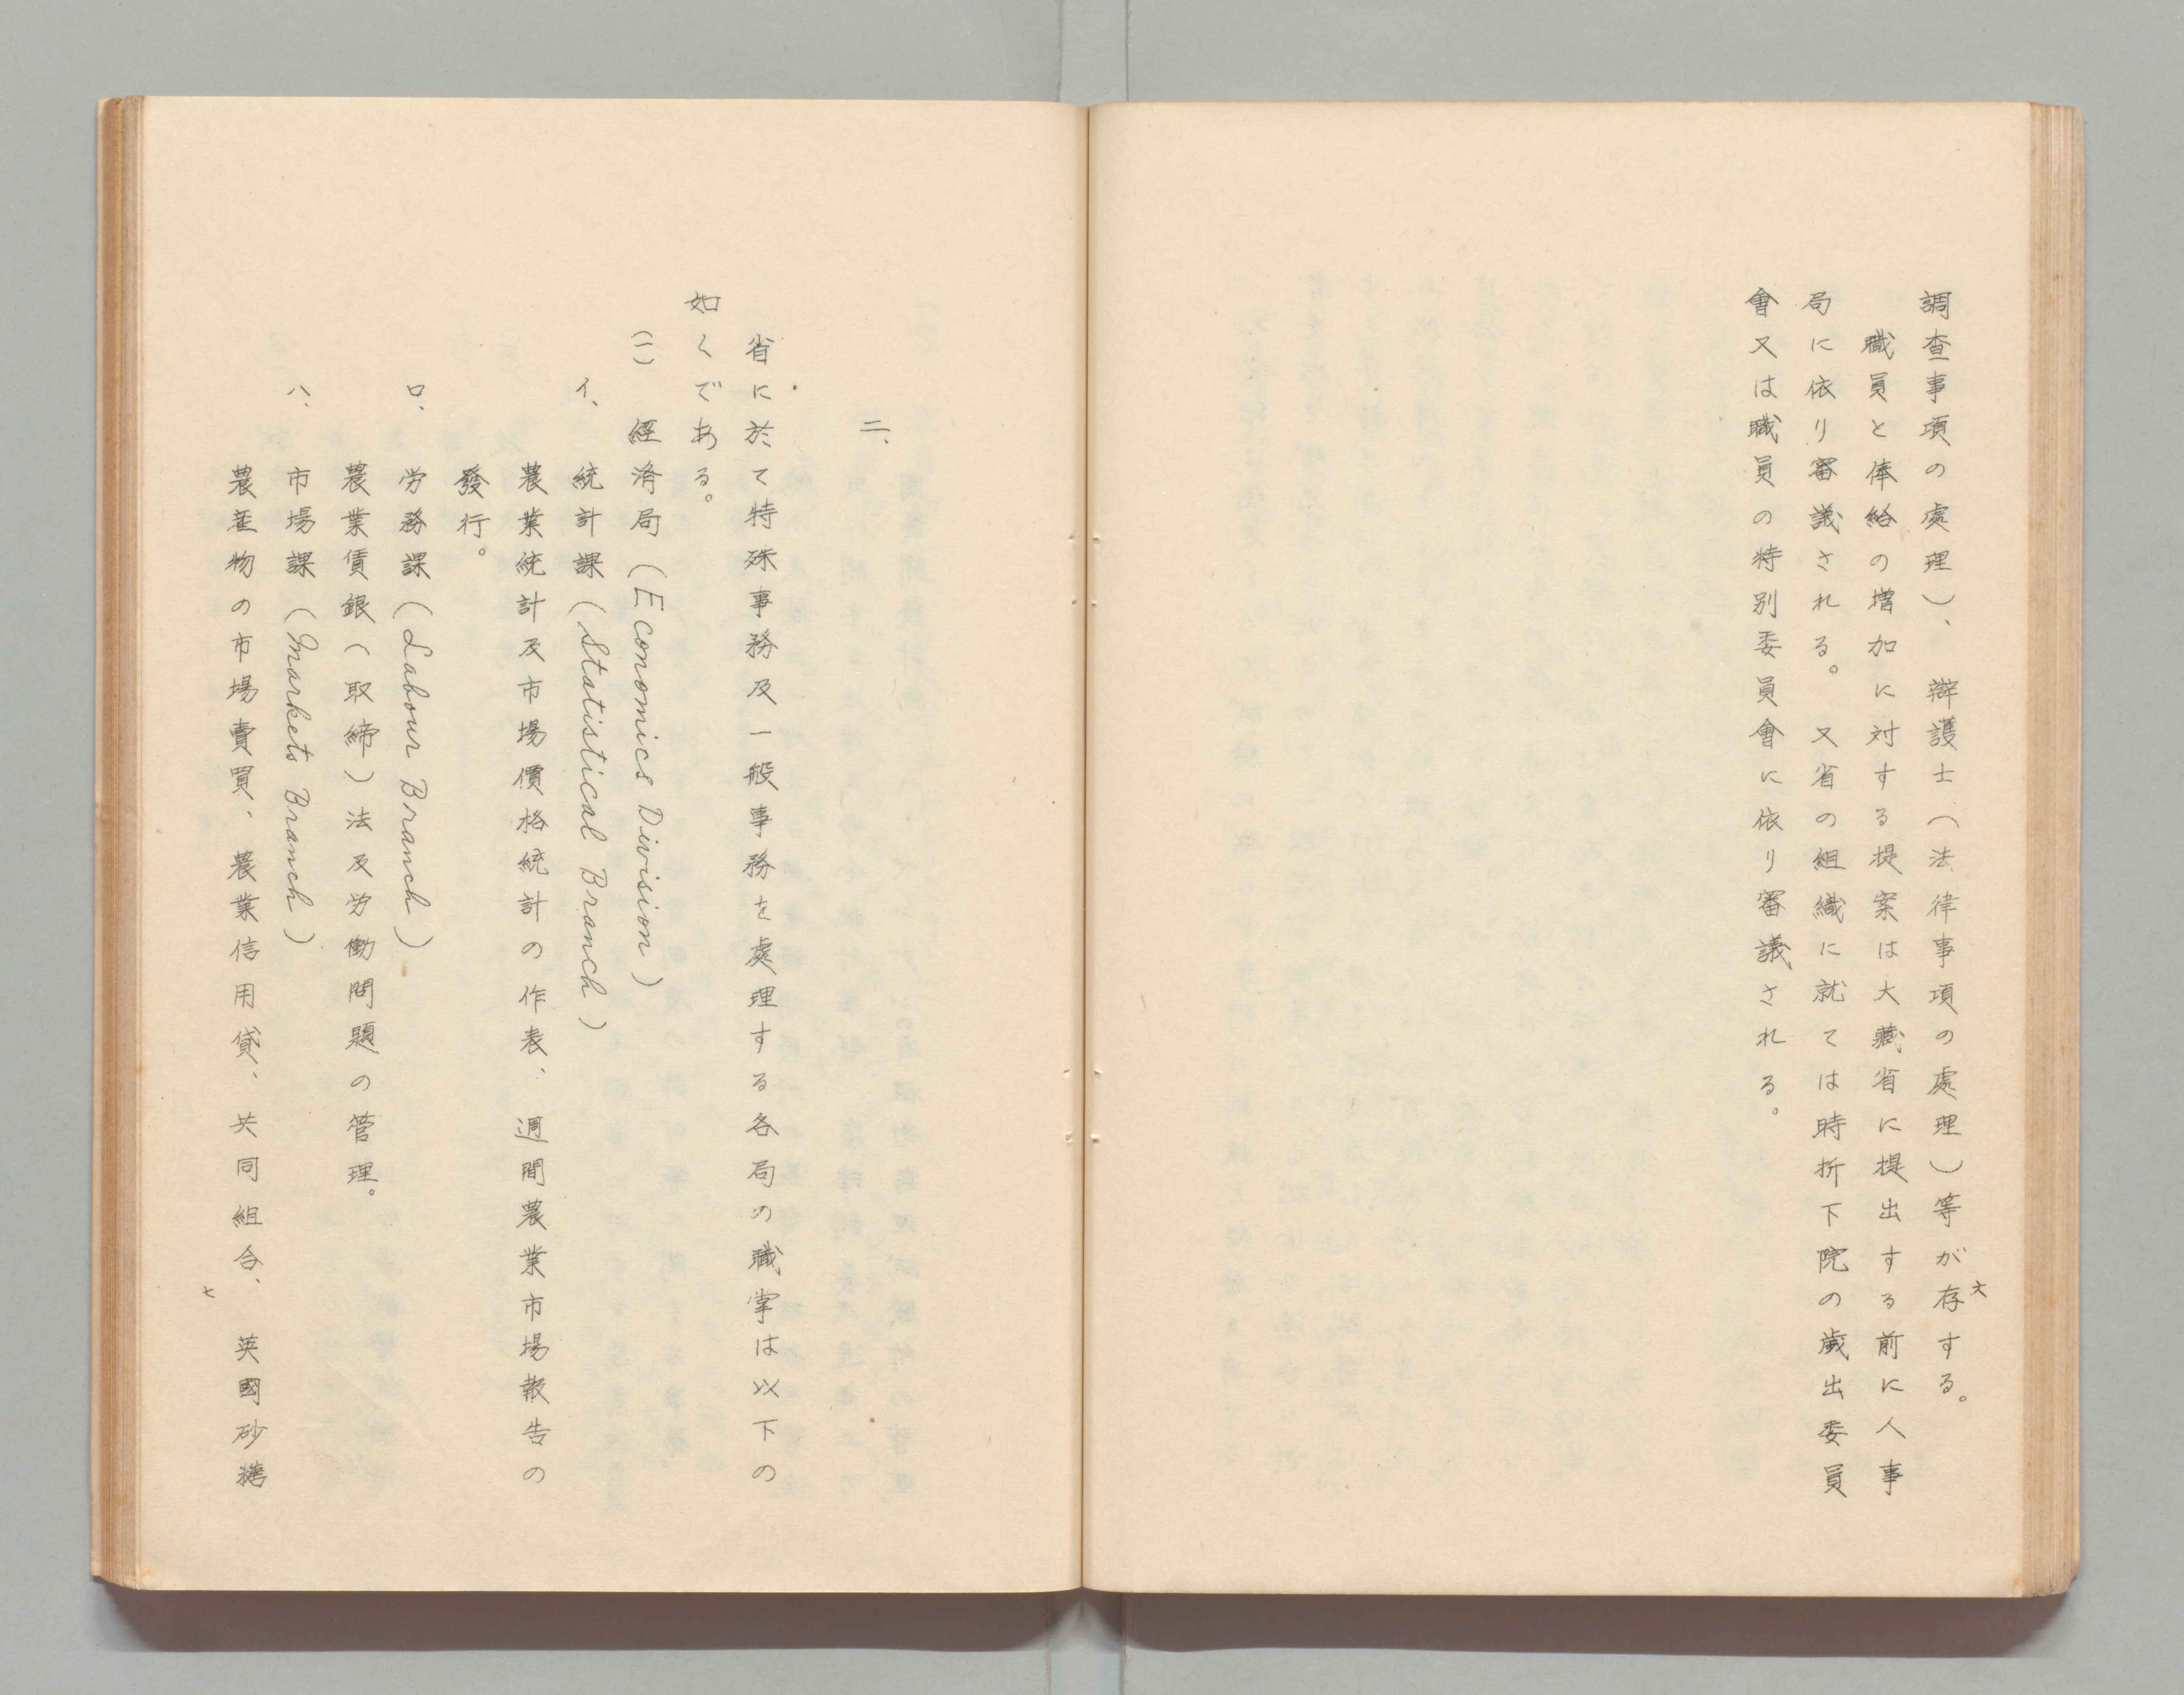 調査事項の處理）、辯護士（法律事項の處理）等が存する。
職員と俸給の増加に対する提案は大藏省に提出する前に人事
局に依り審議される。又省の組織に就ては時折下院の歳出委員
會又は職員の特別委員會に依り審議される。
六
二、
省に於て特殊事務及一般事務を處理する各局の職掌は以下の
如くである。
(一) 經済局（Economics Division）
イ、統計課（Statistical Branch）
農業統計及市場價格統計の作表、週間農業市場報告の
發行。
ロ、労務課（Labour Branch）
農業賃銀（取締）法及労働問題の管理。
ハ、市場課（Markets Branch）
農産物の市場賣買、農業信用貸、共同組合、英國砂糖
七